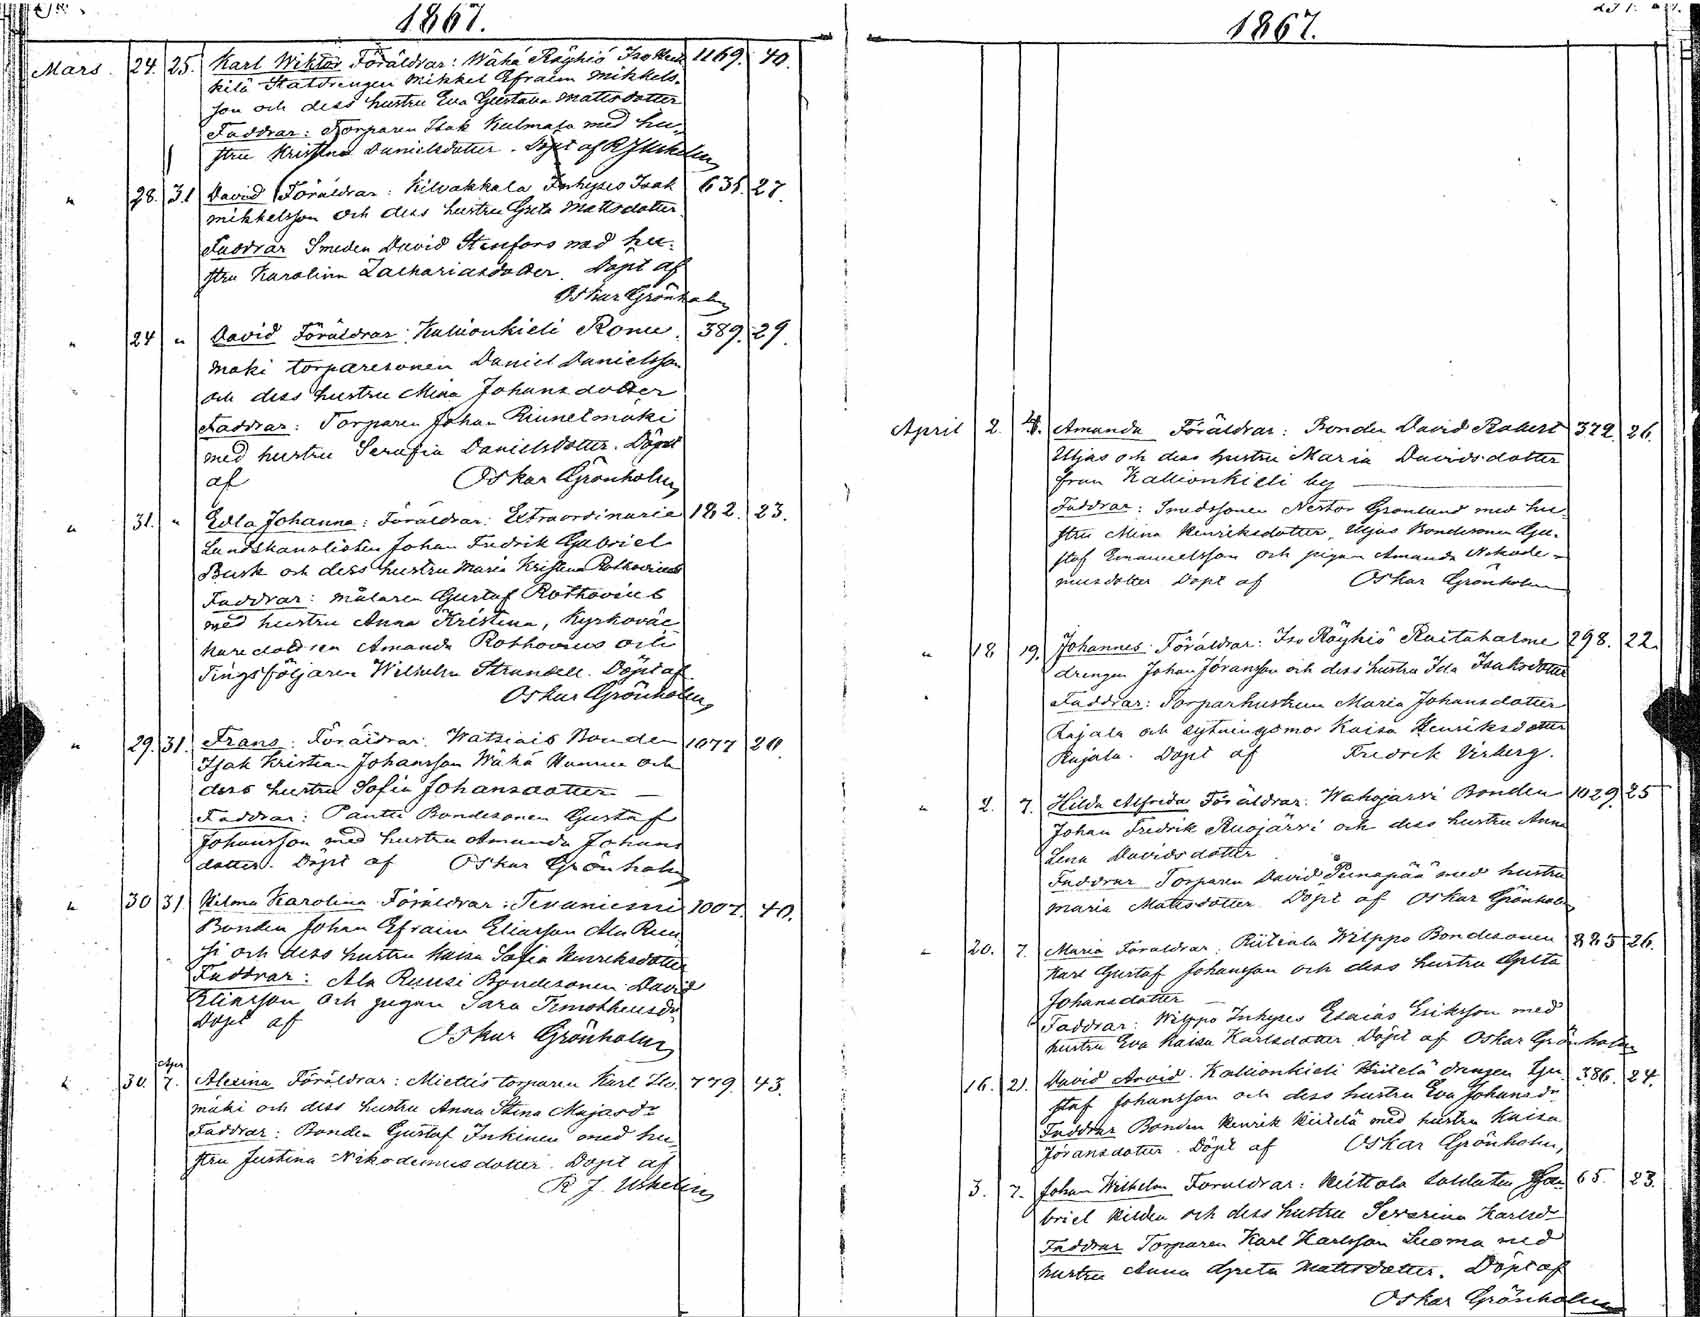 1867.
Mars. 24. 25. Karl Wiktor Föräldrar: Wähä Röyhiö Iso Heik 1169. 40.
kilä Statdrengen Mikkel Efraim Mikkels-
son och dess hustru Eva Gustava Mattsdotter
Faddrar: Torparen Isak Kulmala med hu-
stru Kristina Danielsdotter. Döpt af
" 28. 31 David Föräldrar: Kilvakkala Inhyses Isak 635. 27.
Mikkelsson och dess hustru Greta Mattsdotter.
Faddrar Smeden David Stenfors med hu-
stru Karolina Zachariasdotter. Döpt af
Oskar Grönholm
" 24 " David Föräldrar: Kallionkieli Ronu 389. 29.
mäki torparesonen Daniel Danielsson
och dess hustru Mina Johansdotter
Faddrar: Torparen Johan Rinnelmäki
med hustru Serafia Danielsdotter. Döpt
af Oskar Grönholm
" 31. " Edla Johanna: Föräldrar: Extraordinarie 182. 23.
Landskanslisten Johan Fredrik Gabriel
Busk och dess hustru Maria Kristina Rothovius
Faddrar: Målaren Gustaf Rothovius
med hustru Anna Kristina, Kyrkovåc
Amanda Rothovius och
Tingsföljaren Wilhelm Strandell. Döpt af
Oskar Grönholm
" 29. 31. Frans: Föräldrar: Watsiais Bonden 1077 20.
Isak Kristian Johansson Wähä Hannu och
dess hustru Sofia Johansdotter —
Faddrar: Pantti Bondesonen Gustaf
Johansson med hustru Amanda Johans
dotter. Döpt af Oskar Grönholm
" 30 31. Hilma Karolina Föräldrar: Tevaniemi 1007. 40.
Bonden Johan Efraim Eliasson Ala Ruu
si och dess hustru Kaisa Sofia Henriksdotter
Faddrar: Ala Ruusi Bondesonen David
Eliasson och pigan Sara Timotheusdr
Döpt af Oskar Grönholm
Apr
" 30. 7. Alexina Föräldrar: Miettis torparen Karl Iso 779. 43.
mäki och dess hustru Anna Stina Majasdr
Faddrar: Bonden Gustaf Inkinen med hu-
stru Justina Nikodemusdotter. Döpt af
1867.
April 2. 4. Amanda Föräldrar: Bonden David Robert 372. 26.
Uljas och dess hustru Maria Davidsdotter
från Kallionkieli by —
Faddrar: Smedssonen Nestor Grönlund med hu-
stru Mina Henriksdotter, Uljas Bondesonen Gu-
staf Emanuelsson och pigan Amanda Nikode-
musdotter Döpt af Oskar Grönholm
" 18 19. Johannes: Föräldrar: Iso Röyhiö Raitahalme 298. 22.
drengen Johan Jöransson och dess hustru Ida Isaksdotter
Faddrar: Torparhustrun Maria Johansdotter
Rajala och sytningsmor Kaisa Henriksdotter
Rajala. Döpt af Fredrik Virberg.
" 2. 7. Hilda Alfrida Föräldrar: Wahojärvi Bonden 1029. 25
Johan Fredrik Ruojärvi och dess hustru Anna
Lena Davidsdotter
Faddrar Torparen David Piinapää med hustru
Maria Mattsdotter. Döpt af Oskar Grönholm
" 20. 7. Maria Föräldrar: Riitiala Wilppo Bondesonen 885 26.
Karl Gustaf Johansson och dess hustru Greta
Johansdotter —
Faddrar: Wilppo Inhyses Esaias Eriksson med
hustru Eva Kaisa Karlsdotter Döpt af Oskar Grönholm
16. 21. David Arvid. Kallionkieli Heitelä drengen Gu- 386. 24.
staf Johansson och dess hustru Eva Johansdr
Faddrar Bonden Henrik Heitelä med hustru Kaisa
Jöransdotter. Döpt af Oskar Grönholm,
3. 7. Johan Wilhelm Föräldrar: Heittola soldaten Ga- 65. 23.
briel Hilden och dess hustru Severina Karlsdr
Faddrar Torparen Karl Karlsson Luoma med
hustru Anna Greta Mattsdotter. Döpt af
Oskar Grönholm